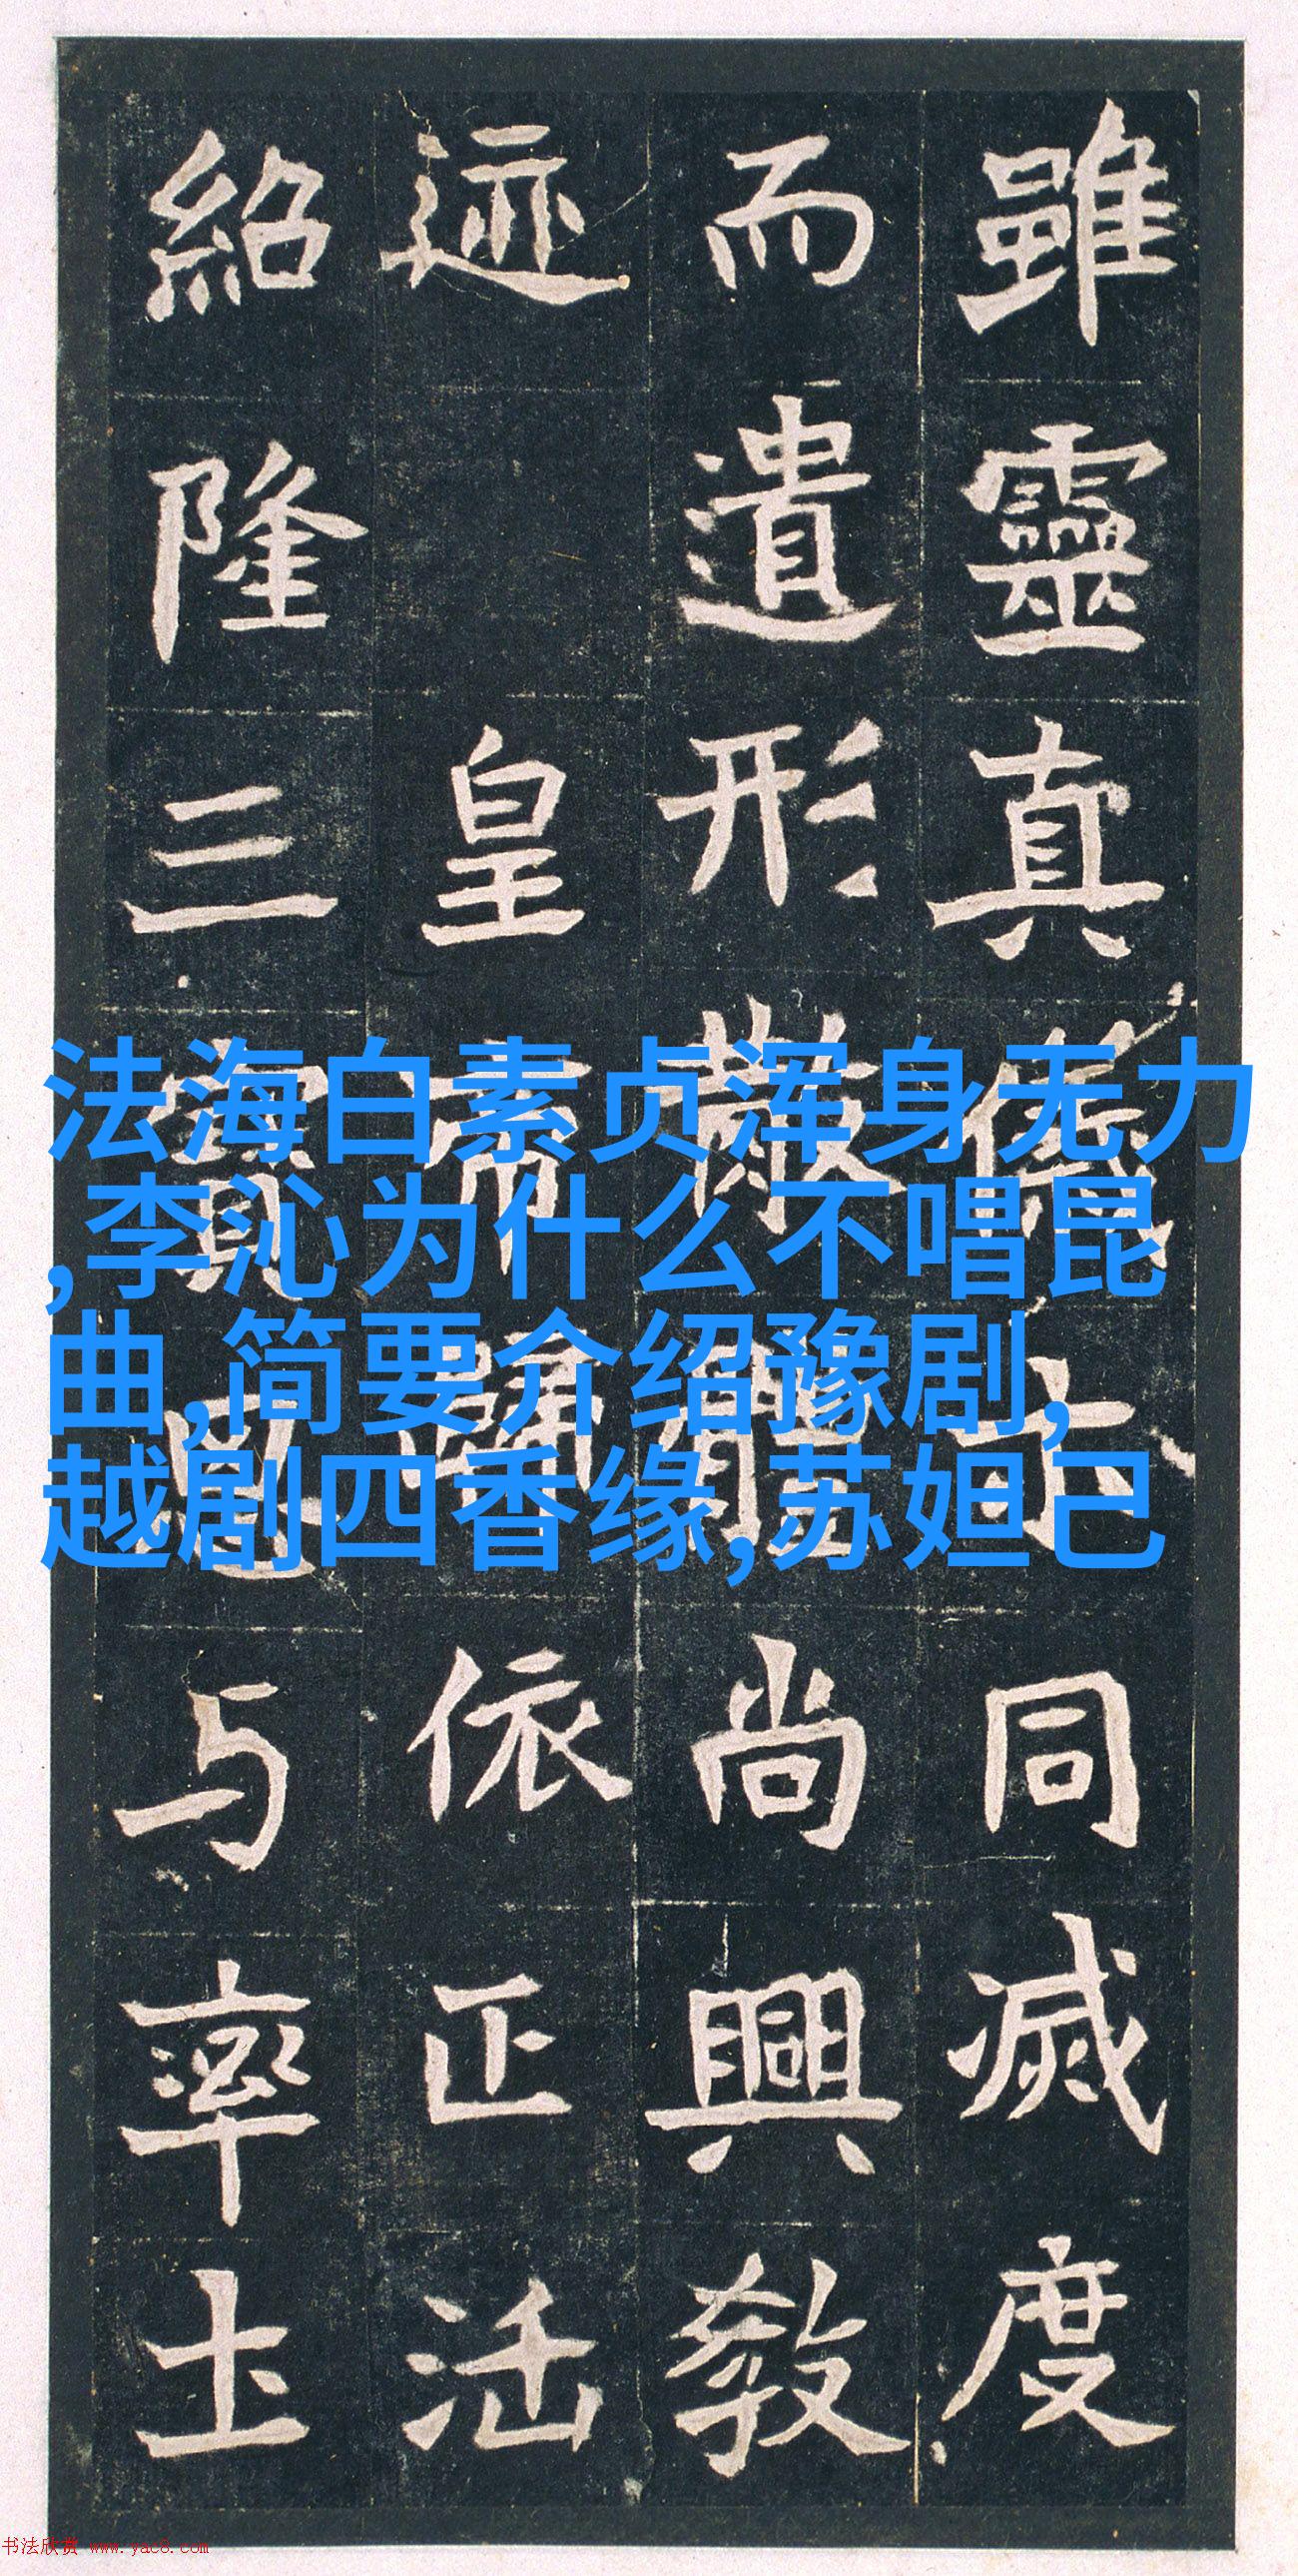 雖靈真儀同滅度
而遺形尚興教
迹皇帝歸依正法
紹隆三寶与率土
法海白素贞浑身无力
,李沁为什么不唱昆
曲,简要介绍豫剧,
越剧四香缘,苏妲己
书法欣赏 www.yac8.com